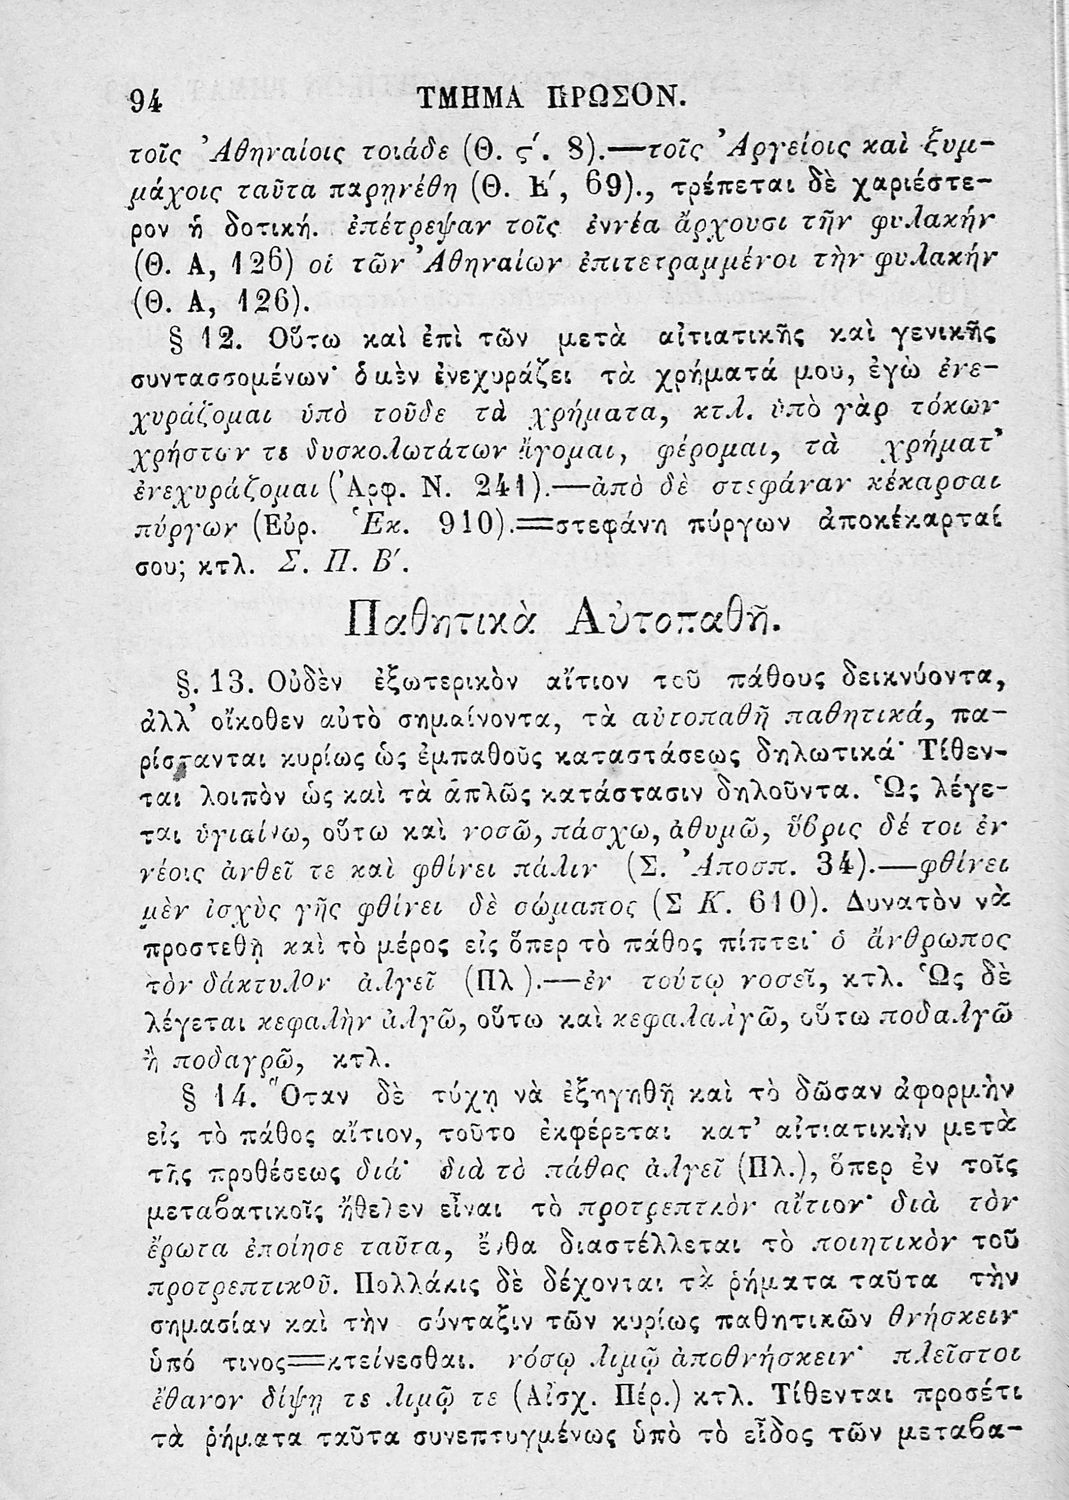 94 ΤΜΗΜΑ ΠΡΩΣΟΝ.
τοῖς Ἀθηναίοις τοιάδε (Θ. ϛ΄. 8).—τοῖς Ἀργείοις καὶ ξυμ-
μάχοις ταῦτα παρῃνέθη (Θ. Ε΄, 69)., τρέπεται δὲ χαριέστε-
ρον ἡ δοτική. ἐπέτρεψαν τοῖς ἐννέα ἄρχουσι τῆν φυλακήν
(Θ. Α, 126) οἱ τῶν Ἀθηναίων ἐπιτετραμμένοι τὴν φυλακήν
(Θ. Α, 126).
§ 12. Οὕτω καὶ ἐπὶ τῶν μετὰ αἰτιατικῆς καὶ γενικῆς
συντασσομένων· ὁ μὲν ἐνεχυράζει τὰ χρήματά μου, ἐγὼ ἐνε-
χυράζομαι ὑπὸ τοῦδε τὰ χρήματα, κτλ. ὑπὸ γὰρ τόκων
χρήστων τε δυσκολωτάτων ἄγομαι, φέρομαι, τὰ χρήματ’
ἐνεχυράζομαι (Ἀρφ. Ν. 241).—ἀπὸ δὲ στεφάναν κέκαρσαι
πύργων (Εὐρ. Ἑκ. 910).=στεφάνη πύργων ἀποκέκαρταί
σου; κτλ. Σ. Π. Β΄.
Παθητικὰ Αὐτοπαθῆ.
§. 13. Οὐδὲν ἐξωτερικὸν αἴτιον τοῦ πάθους δεικνύοντα,
ἀλλ’ οἴκοθεν αὐτὸ σημαίνοντα, τὰ αὐτοπαθῆ παθητικά, πα-
ρίστανται κυρίως ὡς ἐμπαθοῦς καταστάσεως δηλωτικά· Τίθεν-
ται λοιπὸν ὡς καὶ τὰ ἁπλῶς κατάστασιν δηλοῦντα. Ὡς λέγε-
ται ὑγιαίνω, οὕτω καὶ νοσῶ, πάσχω, ἀθυμῶ, ὕβρις δέ τοι ἐν
νέοις ἀνθεῖ τε καὶ φθίνει πάλιν (Σ. Ἀποσπ. 34).—φθίνει
μὲν ἰσχὺς γῆς φθίνει δὲ σώμαπος (Σ Κ. 610). Δυνατὸν νὰ
προστεθῇ καὶ τὸ μέρος εἰς ὅπερ τὸ πάθος πίπτει· ὁ ἄνθρωπος
τὸν δάκτυλον ἀλγεῖ (Πλ).—ἐν τούτῳ νοσεῖ, κτλ. Ὡς δὲ
λέγεται κεφαλὴν ἀλγῶ, οὕτω καὶ κεφαλαλγῶ, οὕτω ποδαλγῶ
ἢ ποδαγρῶ, κτλ.
§ 14. Ὅταν δὲ τύχῃ νὰ ἐξηγηθῇ καὶ τὸ δῶσαν ἀφορμὴν
εἰς τὸ πάθος αἴτιον, τοῦτο ἐκφέρεται κατ’ αἰτιατικὴν μετὰ
τῆς προθέσεως διά· διὰ τὸ πάθος ἀλγεῖ (Πλ.), ὅπερ ἐν τοῖς
μεταβατικοῖς ἤθελεν εἶναι τὸ προτρεπτικὸν αἴτιον· διὰ τὸν
ἔρωτα ἐποίησε ταῦτα, ἔνθα διαστέλλεται τὸ ποιητικὸν τοῦ
προτρεπτικοῦ. Πολλάκις δὲ δέχονται τὰ ῥήματα ταῦτα τὴν
σημασίαν καὶ τὴν σύνταξιν τῶν κυρίως παθητικῶν θνήσκειν
ὑπό τινος=κτείνεσθαι. νόσῳ λιμῷ ἀποθνήσκειν· πλεῖστοι
ἔθανον δίψῃ τε λιμῷ τε (Αἰσχ. Πέρ.) κτλ. Τίθενται προσέτι
τὰ ῥήματα ταῦτα συνεπτυγμένως ὑπὸ τὸ εἶδος τῶν μεταβα-